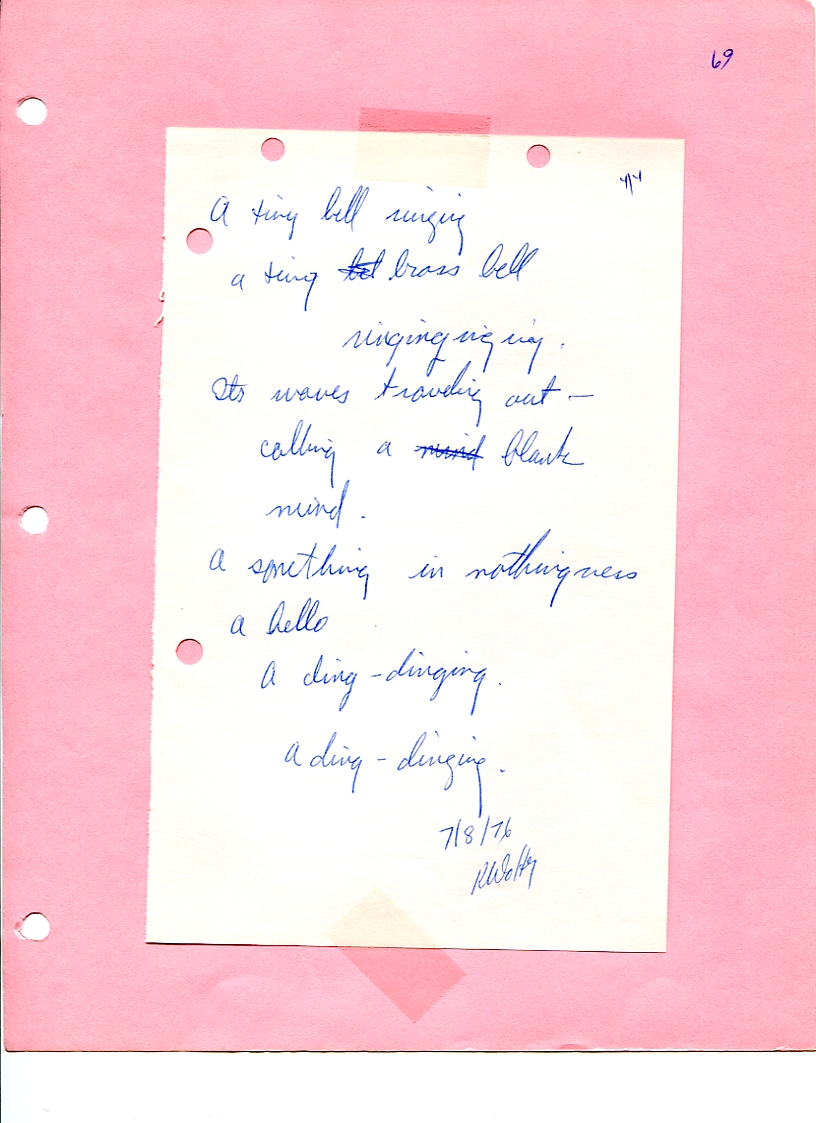 69
A tiny bell ringing
a tiny brass bell
ringinginging.
Its waves traveling out —
calling a mind blank
mind.
A something in nothingness
a hello
A ding-dinging.
A ding-dinging.
7/8/76